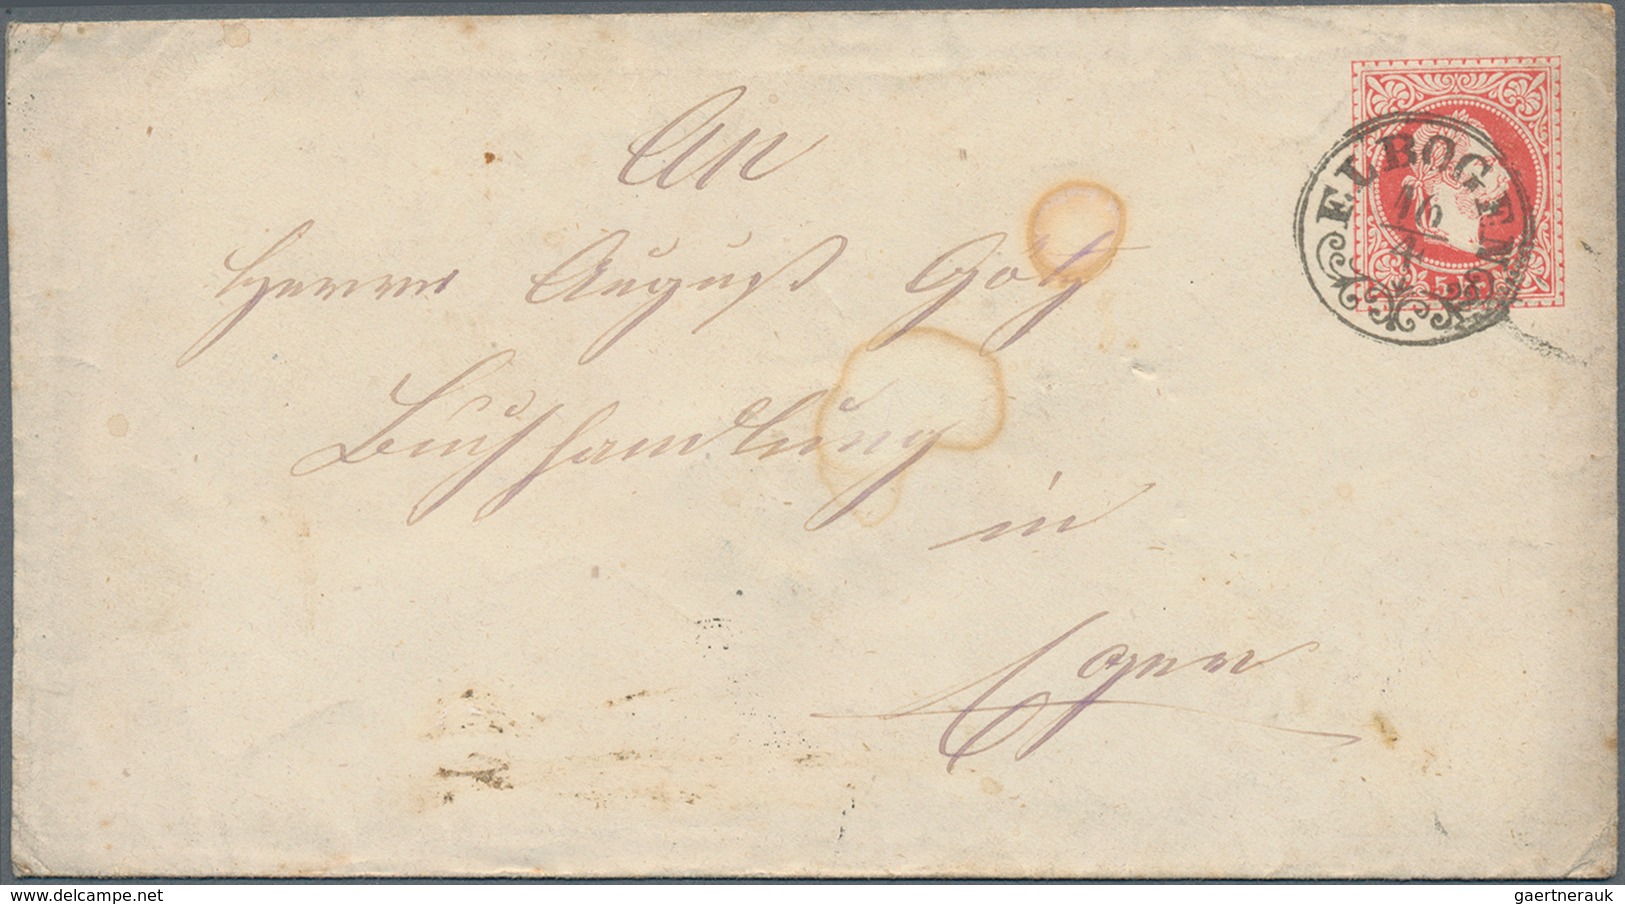 An
Herrn August Götz
Buchhandlung
in
Eger
ELBOGEN
16/4
5
www.delcampe.net
gaertnerauk